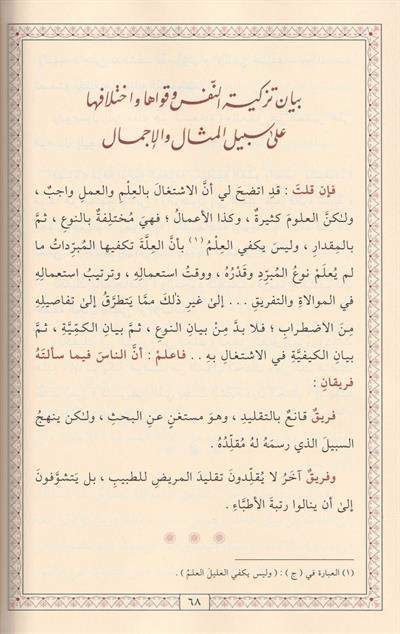 بيان تزكية النفس وقواها واختلافها
على سبيل المثال والإجمال
فإن قلتَ : قدِ اتضحَ لي أنَّ الاشتغالَ بالعِلْمِ والعملِ واجبٌ ،
ولٰكنَّ العلومَ كثيرةٌ ، وكذا الأعمالُ ؛ فهيَ مُختلِفةٌ بالنوعِ ، ثمَّ
بالمِقدارِ ، وليسَ يكفي العِلْمُ (١) بأنَّ العِلَّةَ تكفيها المبرِّداتُ ما
لم يُعلَمْ نوعُ المبرِّدِ وقَدْرُهُ ، ووقتُ استعمالِهِ ، وترتيبُ استعمالِهِ
في الموالاةِ والتفريقِ . . . إلىٰ غيرِ ذٰلكَ ممَّا يَتطرَّقُ إلىٰ تفاصيلِهِ
مِنَ الاضطرابِ ؛ فلا بدَّ مِنْ بيانِ النوعِ ، ثمَّ بيانِ الكمِّيَّةِ ، ثمَّ
بيانِ الكيفيَّةِ في الاشتغالِ بهِ . . فاعلمْ : أنَّ الناسَ فيما سألتَهُ
فريقانِ :
فريقٌ قانعٌ بالتقليدِ ، وهوَ مستغنٍ عنِ البحثِ ، ولٰكن ينهجُ
السبيلَ الذي رسمَهُ لهُ مُقلَّدُهُ .
وفريقٌ آخَرُ لا يُقلِّدونَ تقليدَ المريضِ للطبيبِ ، بل يَتشوَّفونَ
إلىٰ أن ينالوا رتبةَ الأطبَّاءِ .
(١) العبارة في ( ج ) : ( وليس يكفي العليلَ العلمُ ) .
٦٨